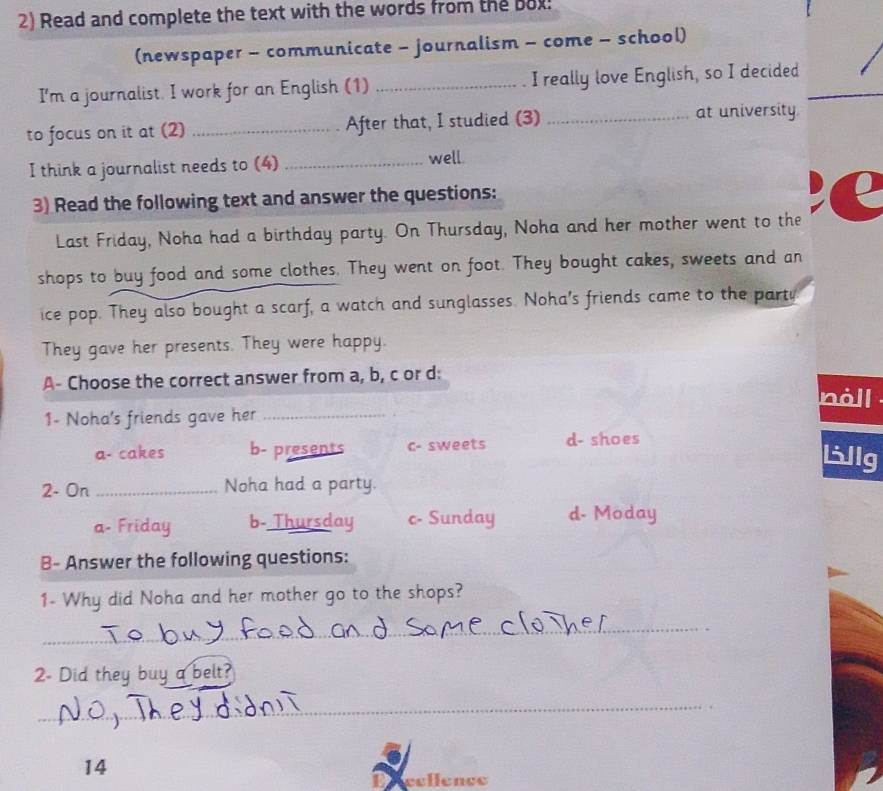 2) Read and complete the text with the words from the box:
(newspaper - communicate - journalism - come - school)
I'm a journalist. I work for an English (1) ........................ . I really love English, so I decided
to focus on it at (2) ........................ . After that, I studied (3) ........................ at university.
I think a journalist needs to (4) ........................ well.
3) Read the following text and answer the questions:
Last Friday, Noha had a birthday party. On Thursday, Noha and her mother went to the
shops to buy food and some clothes. They went on foot. They bought cakes, sweets and an
ice pop. They also bought a scarf, a watch and sunglasses. Noha's friends came to the party.
They gave her presents. They were happy.
A- Choose the correct answer from a, b, c or d:
1- Noha's friends gave her ........................ .
a- cakes b- presents c- sweets d- shoes
2- On ........................ Noha had a party.
a- Friday b- Thursday c- Sunday d- Moday
B- Answer the following questions:
1- Why did Noha and her mother go to the shops?
To buy food and some clother
2- Did they buy a belt?
No, They didn't
14
Excellence